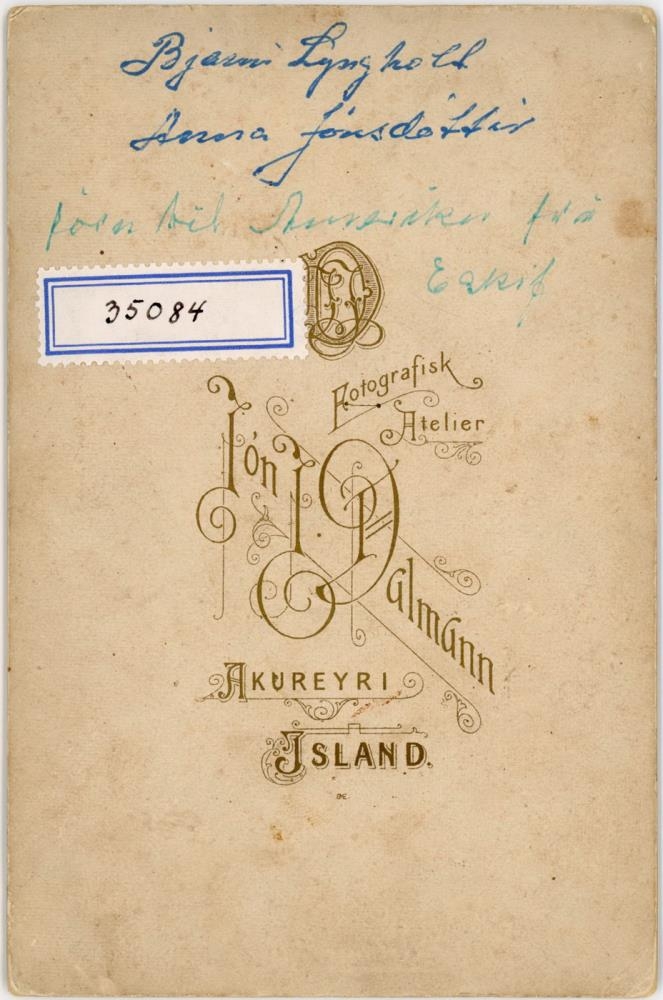 Bjarni Lyngholt
Anna Jónsdóttir
fóru til Ameriku frá
Eskif
35084
Fotografisk
Atelier
Jón J. Dalmann
AKUREYRI
ISLAND.